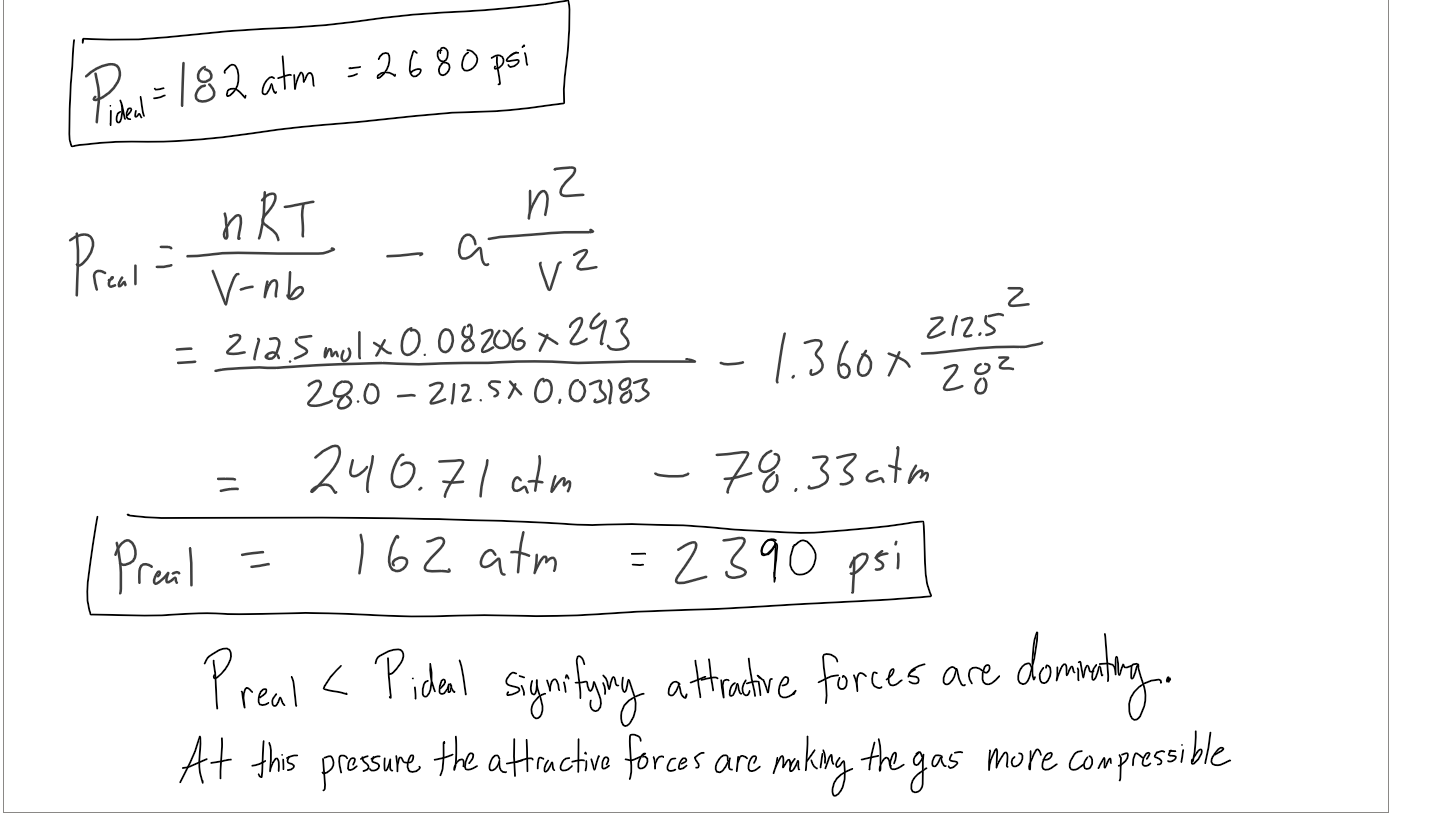 P_ideal = 182 atm = 2680 psi
P_real = nRT / (V-nb) - a n² / V²
= 212.5 mol x 0.08206 x 293 / (28.0 - 212.5 x 0.03183) - 1.360 x 212.5² / 28²
= 240.71 atm - 78.33 atm
P_real = 162 atm = 2390 psi
P_real < P_ideal signifying attractive forces are dominating.
At this pressure the attractive forces are making the gas more compressible